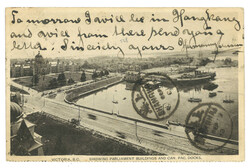 To-morrow I will be in Hongkong
and will from there send you a
letter. Sincerely yours
VICTORIA, B.C. SHOWING PARLIAMENT BUILDINGS AND CAN. PAC. DOCKS.